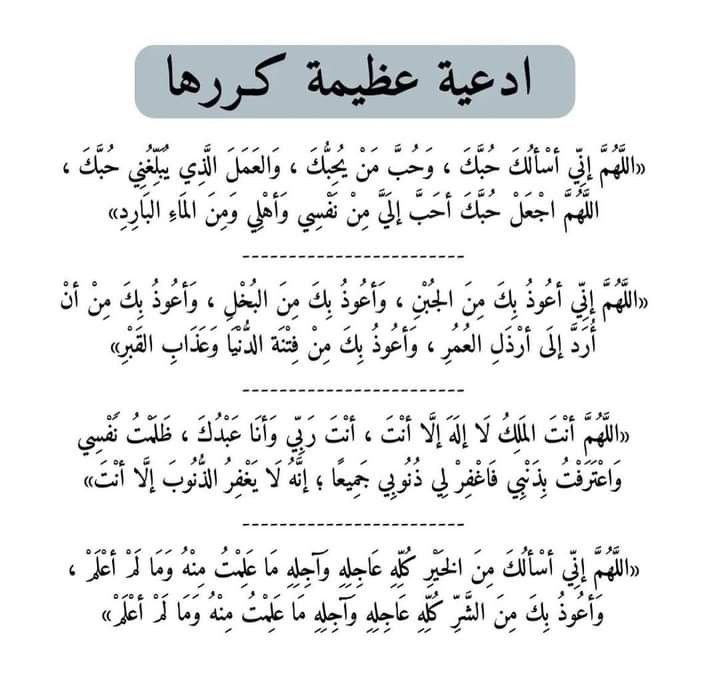 ادعية عظيمة كررها
«اللَّهُمَّ إنِّي أسْألُكَ حُبَّكَ ، وَحُبَّ مَنْ يُحِبُّكَ ، وَالعَمَلَ الَّذِي يُبَلِّغُنِي حُبَّكَ ،
اللَّهُمَّ اجْعَلْ حُبَّكَ أحَبَّ إلَيَّ مِنْ نَفْسِي وَأهْلِي وَمِنَ المَاءِ البَارِدِ»
------------------------
«اللَّهُمَّ إنِّي أعُوذُ بِكَ مِنَ الجُبْنِ ، وَأعُوذُ بِكَ مِنَ البُخْلِ ، وَأعُوذُ بِكَ مِنْ أنْ
أُرَدَّ إلَى أرْذَلِ العُمُرِ ، وَأعُوذُ بِكَ مِنْ فِتْنَة الدُّنْيَا وَعَذَابِ القَبْرِ»
------------------------
«اللَّهُمَّ أنْتَ المَلِكُ لَا إلَهَ إلَّا أنْتَ ، أنْتَ رَبِّي وَأنَا عَبْدُكَ ، ظَلَمْتُ نَفْسِي
وَاعْتَرَفْتُ بِذَنْبِي فَاغْفِرْ لِي ذُنُوبِي جَمِيعًا ؛ إنَّهُ لَا يَغْفِرُ الذُّنُوبَ إلَّا أنْتَ»
------------------------
«اللَّهُمَّ إنِّي أسْألُكَ مِنَ الخَيْرِ كُلِّهِ عَاجِلِهِ وَآجِلِهِ مَا عَلِمْتُ مِنْهُ وَمَا لَمْ أعْلَمْ ،
وَأعُوذُ بِكَ مِنَ الشَّرِّ كُلِّهِ عَاجِلِهِ وَآجِلِهِ مَا عَلِمْتُ مِنْهُ وَمَا لَمْ أعْلَمْ»